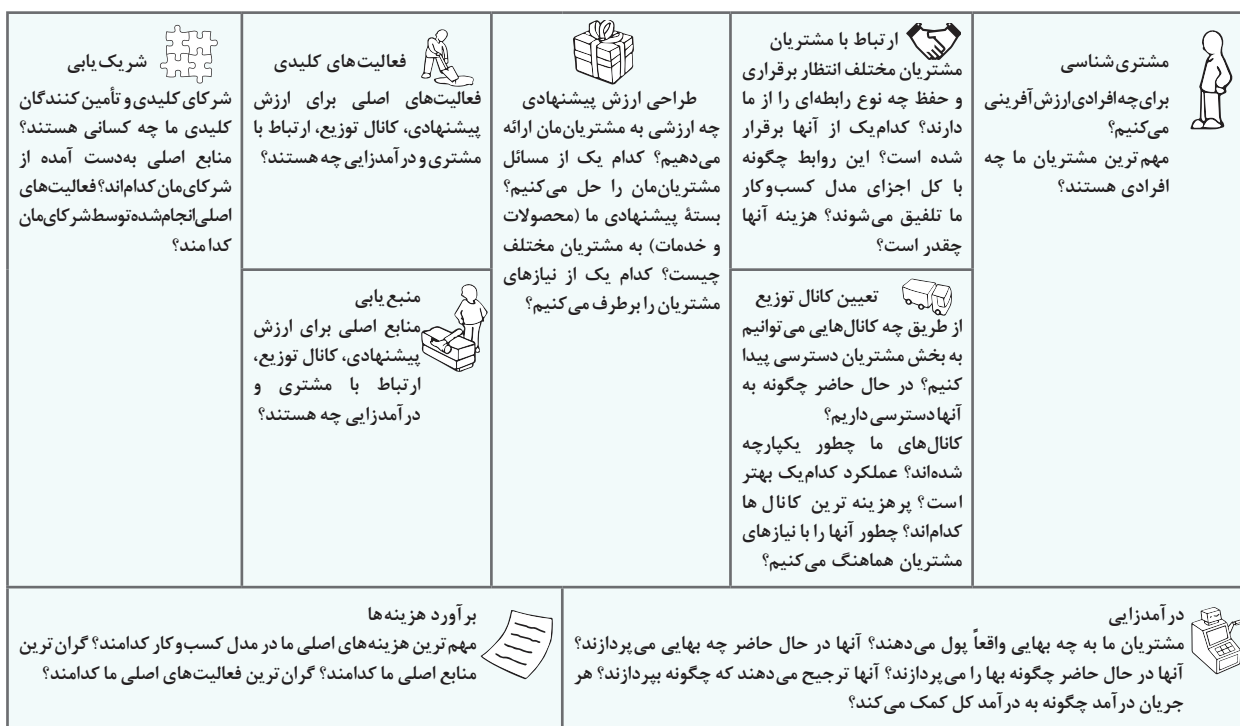 مشتری‌شناسی
برای چه افرادی ارزش‌آفرینی
می‌کنیم؟
مهم‌ترین مشتریان ما چه
افرادی هستند؟
ارتباط با مشتریان
مشتریان مختلف انتظار برقراری
و حفظ چه نوع رابطه‌ای را از ما
دارند؟ کدام‌یک از آنها برقرار
شده است؟ این روابط چگونه
با کل اجزای مدل کسب‌وکار
ما تلفیق می‌شوند؟ هزینه آنها
چقدر است؟
تعیین کانال توزیع
از طریق چه کانال‌هایی می‌توانیم
به بخش مشتریان دسترسی پیدا
کنیم؟ در حال حاضر چگونه به
آنها دسترسی داریم؟
کانال‌های ما چطور یکپارچه
شده‌اند؟ عملکرد کدام‌یک بهتر
است؟ پرهزینه ترین کانال ها
کدام‌اند؟ چطور آنها را با نیازهای
مشتریان هماهنگ می‌کنیم؟
طراحی ارزش پیشنهادی
چه ارزشی به مشتریان‌مان ارائه
می‌دهیم؟ کدام یک از مسائل
مشتریان‌مان را حل می‌کنیم؟
بستهٔ پیشنهادی ما (محصولات
و خدمات) به مشتریان مختلف
چیست؟ کدام یک از نیازهای
مشتریان را برطرف می‌کنیم؟
فعالیت‌های کلیدی
فعالیت‌های اصلی برای ارزش
پیشنهادی، کانال توزیع، ارتباط با
مشتری و درآمدزایی چه هستند؟
منبع‌یابی
منابع اصلی برای ارزش
پیشنهادی، کانال توزیع،
ارتباط با مشتری و
درآمدزایی چه هستند؟
شریک‌یابی
شرکای کلیدی و تأمین کنندگان
کلیدی ما چه کسانی هستند؟
منابع اصلی به‌دست آمده از
شرکای‌مان کدام‌اند؟ فعالیت‌های
اصلی انجام‌شده توسط شرکای‌مان
کدامند؟
درآمدزایی
مشتریان ما به چه بهایی واقعاً پول می‌دهند؟ آنها در حال حاضر چه بهایی می‌پردازند؟
آنها در حال حاضر چگونه بها را می‌پردازند؟ آنها ترجیح می‌دهند که چگونه بپردازند؟ هر
جریان درآمد چگونه به درآمد کل کمک می‌کند؟
برآورد هزینه‌ها
مهم‌ترین هزینه‌های اصلی ما در مدل کسب‌وکار کدامند؟ گران‌ترین
منابع اصلی ما کدامند؟ گران‌ترین فعالیت‌های اصلی ما کدامند؟